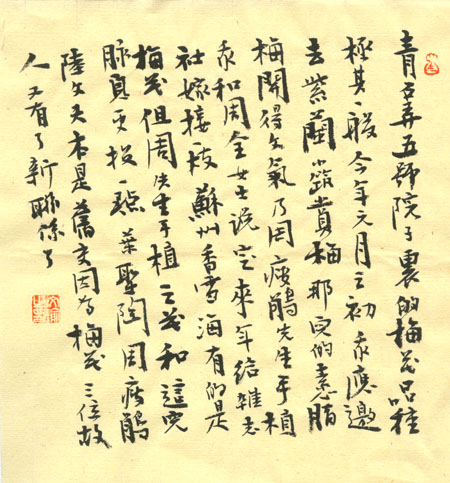 青石弄五號院子裏的梅花品種
極其一般今年元月之初我應邀
去紫蘭小築賞梅那兒的素脂
梅開得生氣乃周瘦鵑先生手植
我和周全女士說定來年給雜志
社嫁接一枝蘇州香雪海有的是
梅花但周先生手植之花和這兒
脉息更投一點葉聖陶周瘦鵑
陸文夫本是舊友因为梅花三位故
人又有了新聯係了